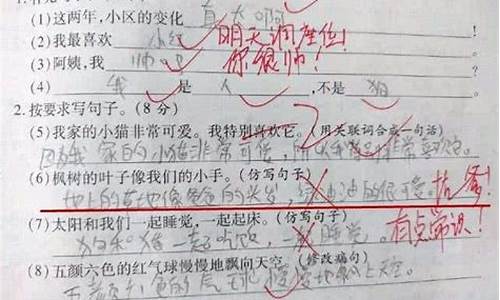 (1)这两年,小区的变化 真大啊
(2)我最喜欢 小红 明天调座位!
(3)阿姨,我 帅吧 你很帅!
(4) 我 是 人 ,不是 狗
2.按要求写句子。(8分)
(5)我家的小猫非常可爱。我特别喜欢它。(用关联词合成一句话)
因为我家的小猫非常可爱,所以我特别非常喜欢它。
(6)枫树的叶子像我们的小手。(仿写句子)
地上的草地像爸爸的头发,绿油油的很可爱。
(7)太阳和我们一起睡觉,一起起床。(仿写句子)
狗和猪一起吃饭,一起睡觉。有点常识!
(8)五颜六色的红气球慢慢地飘向天空。(修改病句)
五颜六色的气球慢慢地飘上天空。